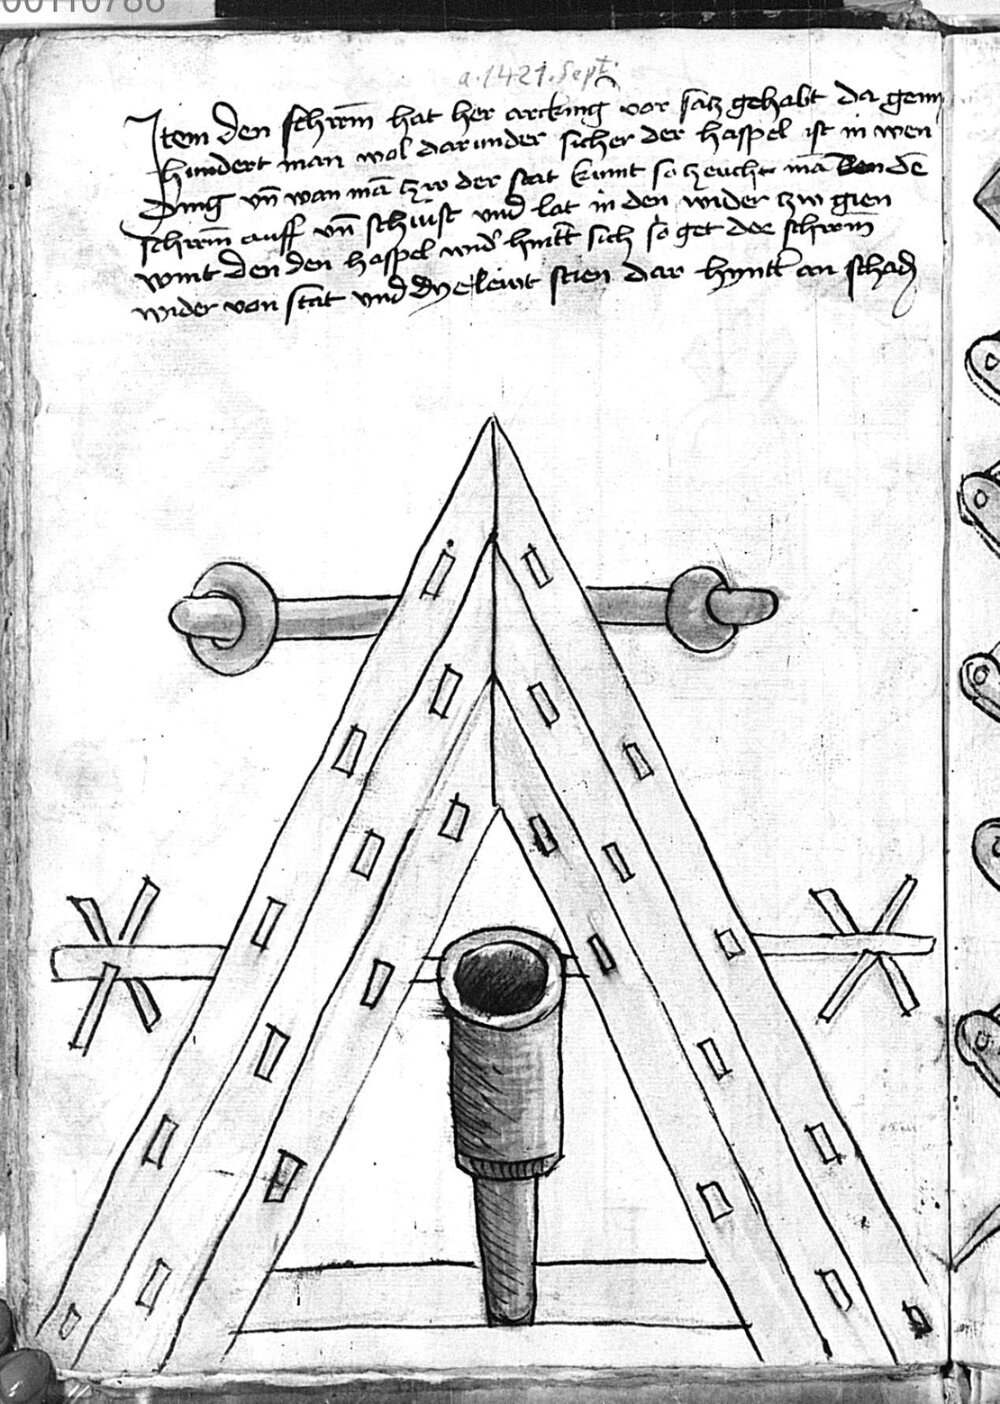 00110786
a. 1421. Sept.
Item den schirm hat her arcking vor satz gehabt da genn
hundert man wol darunder sicher der haspel ist in wen
ding vn̄ wan mā tzw der stat kumt so zeucht mā den dē
schirm auff vn̄ schiust und lat in den wider tzw gien
wint den den haspel wid' hintt sich so get der schirm
wider von stat und dye lewt sten dar hyntt an schad